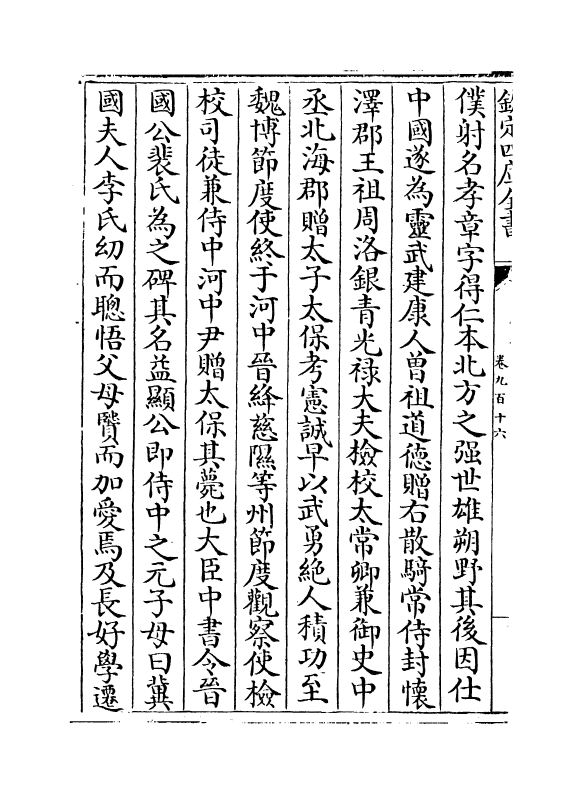 欽定四庫全書
卷九百十六
僕射名孝章字得仁本北方之强世雄朔野其後因仕
中國遂為靈武建康人曽祖道徳贈右散騎常侍封懷
澤郡王祖周洛銀青光禄大夫檢校太常卿兼御史中
丞北海郡贈太子太保考憲誠早以武勇絶人積功至
魏博節度使終于河中晉絳慈隰等州節度觀察使檢
校司徒兼侍中河中尹贈太保其薨也大臣中書令晉
國公裴氏為之碑其名益顯公即侍中之元子母曰冀
國夫人李氏幼而聰悟父母賢而加愛焉及長好學遷